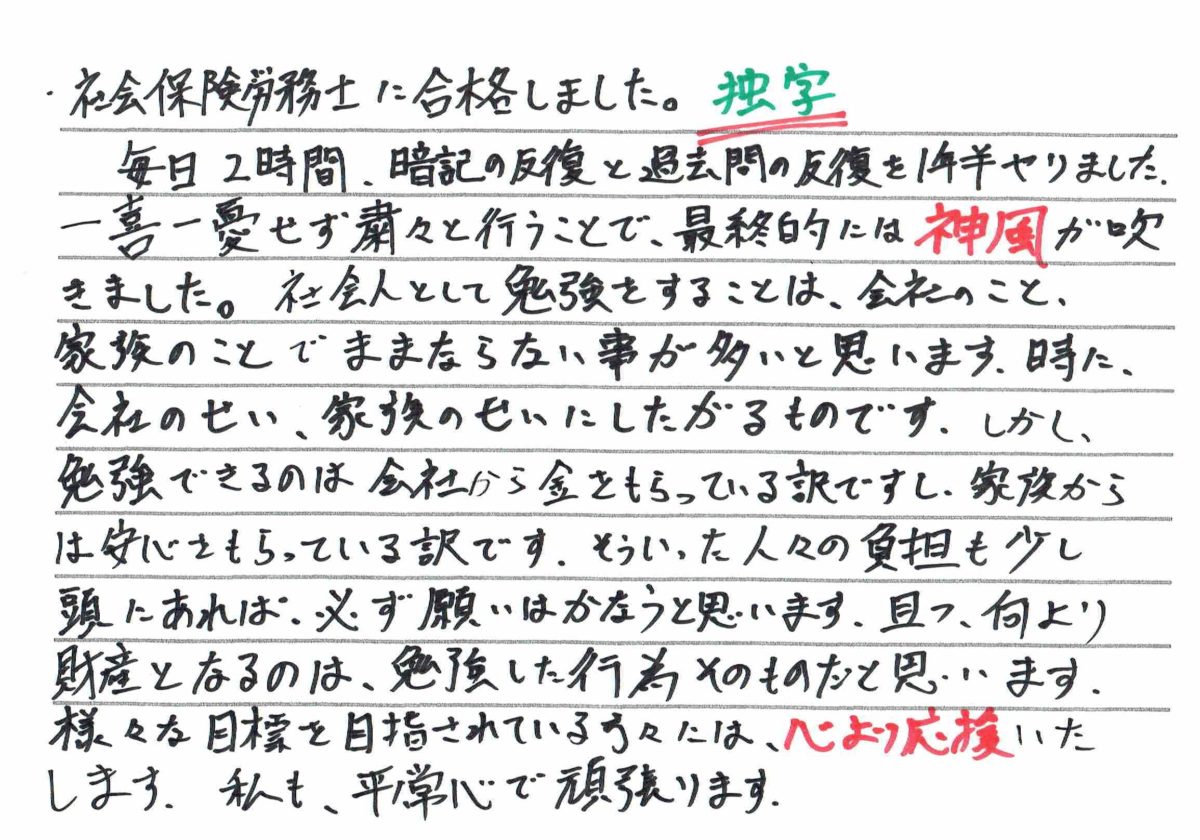 ・社会保険労務士に合格しました。 独学
毎日2時間、暗記の反復と過去問の反復を1年半ヤりました.
一喜一憂せず粛々と行うことで、最終的には神風が吹
きました。 社会人として勉強をすることは、会社のこと、
家族のことでままならない事が多いと思います. 時に、
会社のせい、家族のせいにしたがるものです. しかし、
勉強できるのは会社から金をもらっている訳ですし、家族から
は安心をもらっている訳です. そういった人々の負担も少し
頭にあれば、必ず願いはかなうと思います. 且つ、何より
財産となるのは、勉強した行為そのものだと思います.
様々な目標を目指されている方々には、心より応援いた
します. 私も、平常心で頑張ります.